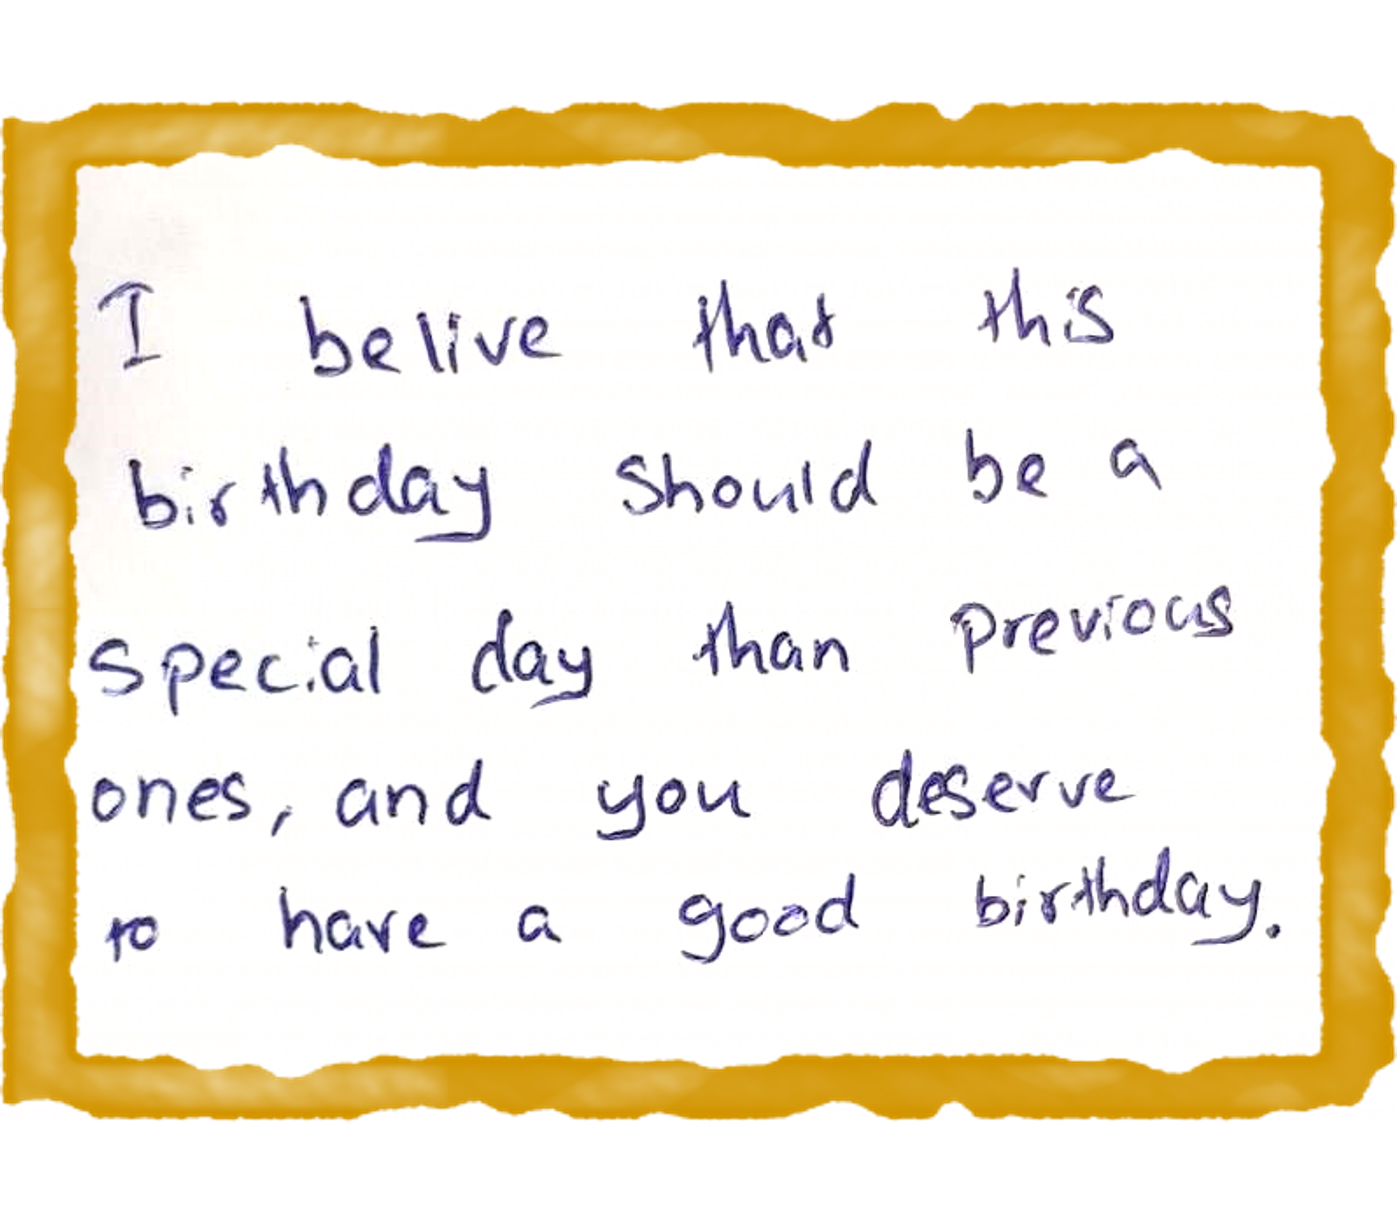 I belive that this
birthday should be a
special day than previous
ones, and you deserve
to have a good birthday.